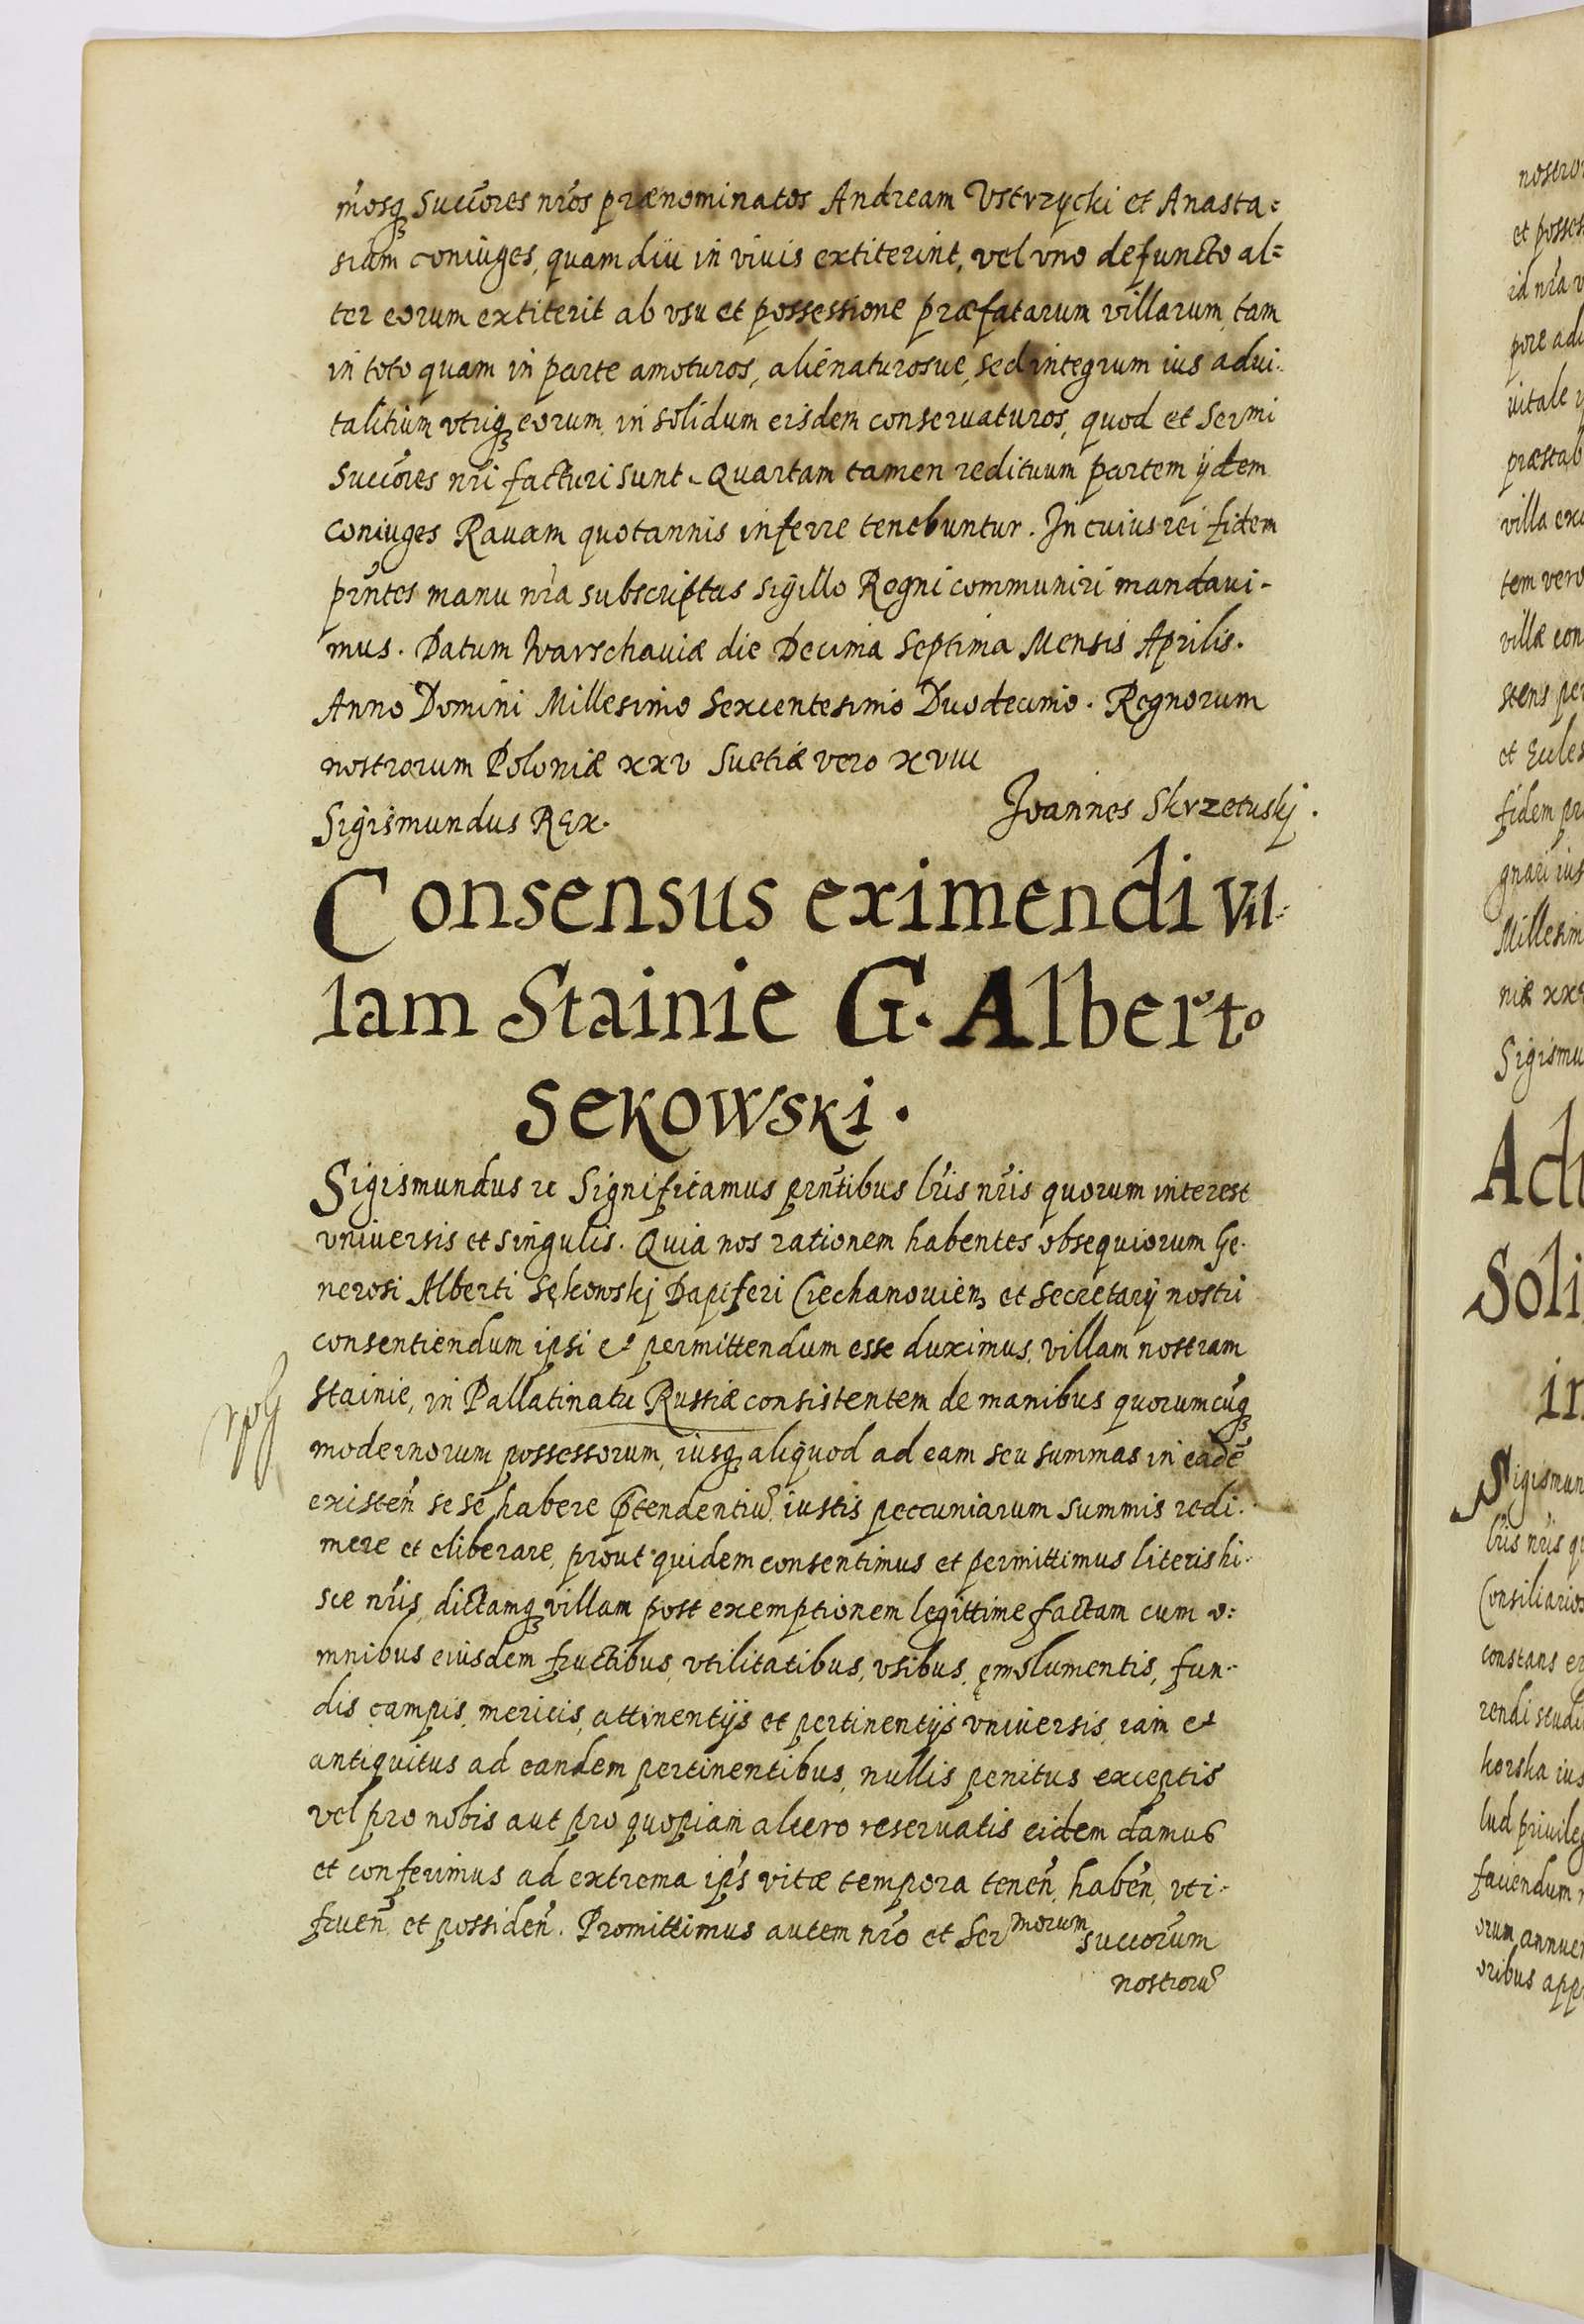 m̃osq3 Succ̃ores nr̃os prænominatos Andream Vstrzycki et Anasta=
siam coniuges, quam diu in viuis extiterint, vel vno defuncto al=
ter eorum extiterit ab vsu et possessione præfatarum villarum, tam
in toto quam in parte amoturos, alienaturosue, sed integrum ius adui-
talitium vtriq3 eorum in solidum eisdem conseruaturos, quod et Sermi
Succ̃ores nr̃i facturi sunt. Quartam tamen redituum partem ijdem
coniuges Rauam quotannis inferre tenebuntur. In cuius rei fidem
pr̃ntes manu nr̃a subscriptas sigillo Regni communiri mandaui-
mus. Datum Warschauiæ die Decima Septima Mensis Aprilis.
Anno Domini Millesimo Sexcentesimo Duodecimo. Regnorum
nostrorum Poloniæ xxv Suetiæ vero xviii
Sigismundus REx. Joannes Skrzetuskj.
Consensus eximendi vil-
lam Stainie G. Alberto
Sekowski.
Sigismundus etc Significamus pr̃ntibus lr̃is nr̃is quorum interest
vniversis et singulis. Quia nos rationem habentes obsequiorum Ge-
nerosi Alberti Sękowskj Dapiferi Ciechanouien3 et Secretarij nostri
consentiendum ipsi et permittendum esse duximus, villam nostram
Stainie, in Pallatinatu Russiæ consistentem de manibus quorumcũq3
modernorum possessorum, iusq3 aliquod ad eam seu summas in eadẽ
existeñ sese habere p̃tendentiũ, iustis peccuniarum summis redi-
mere et eliberare, prout quidem consentimus et permittimus literis hi-
sce nr̃is, dictamq3 villam post exemptionem legittime factam cum o=
mnibus eiusdem fructibus, vtilitatibus, vsibus, ęmolumentis, fun-
dis campis, mericis, attinentijs et pertinentijs vniuersis, iam et
antiquitus ad eandem pertinentibus, nullis penitus exceptis
vel pro nobis aut pro quopiam altero reseruatis eidem damus
et conferimus ad extrema ip̃s vitæ tempora teneñ, habeñ, vti-
frueñ et possideñ. Promittimus autem nr̃o et Ser morum succorũm
nostrorũ